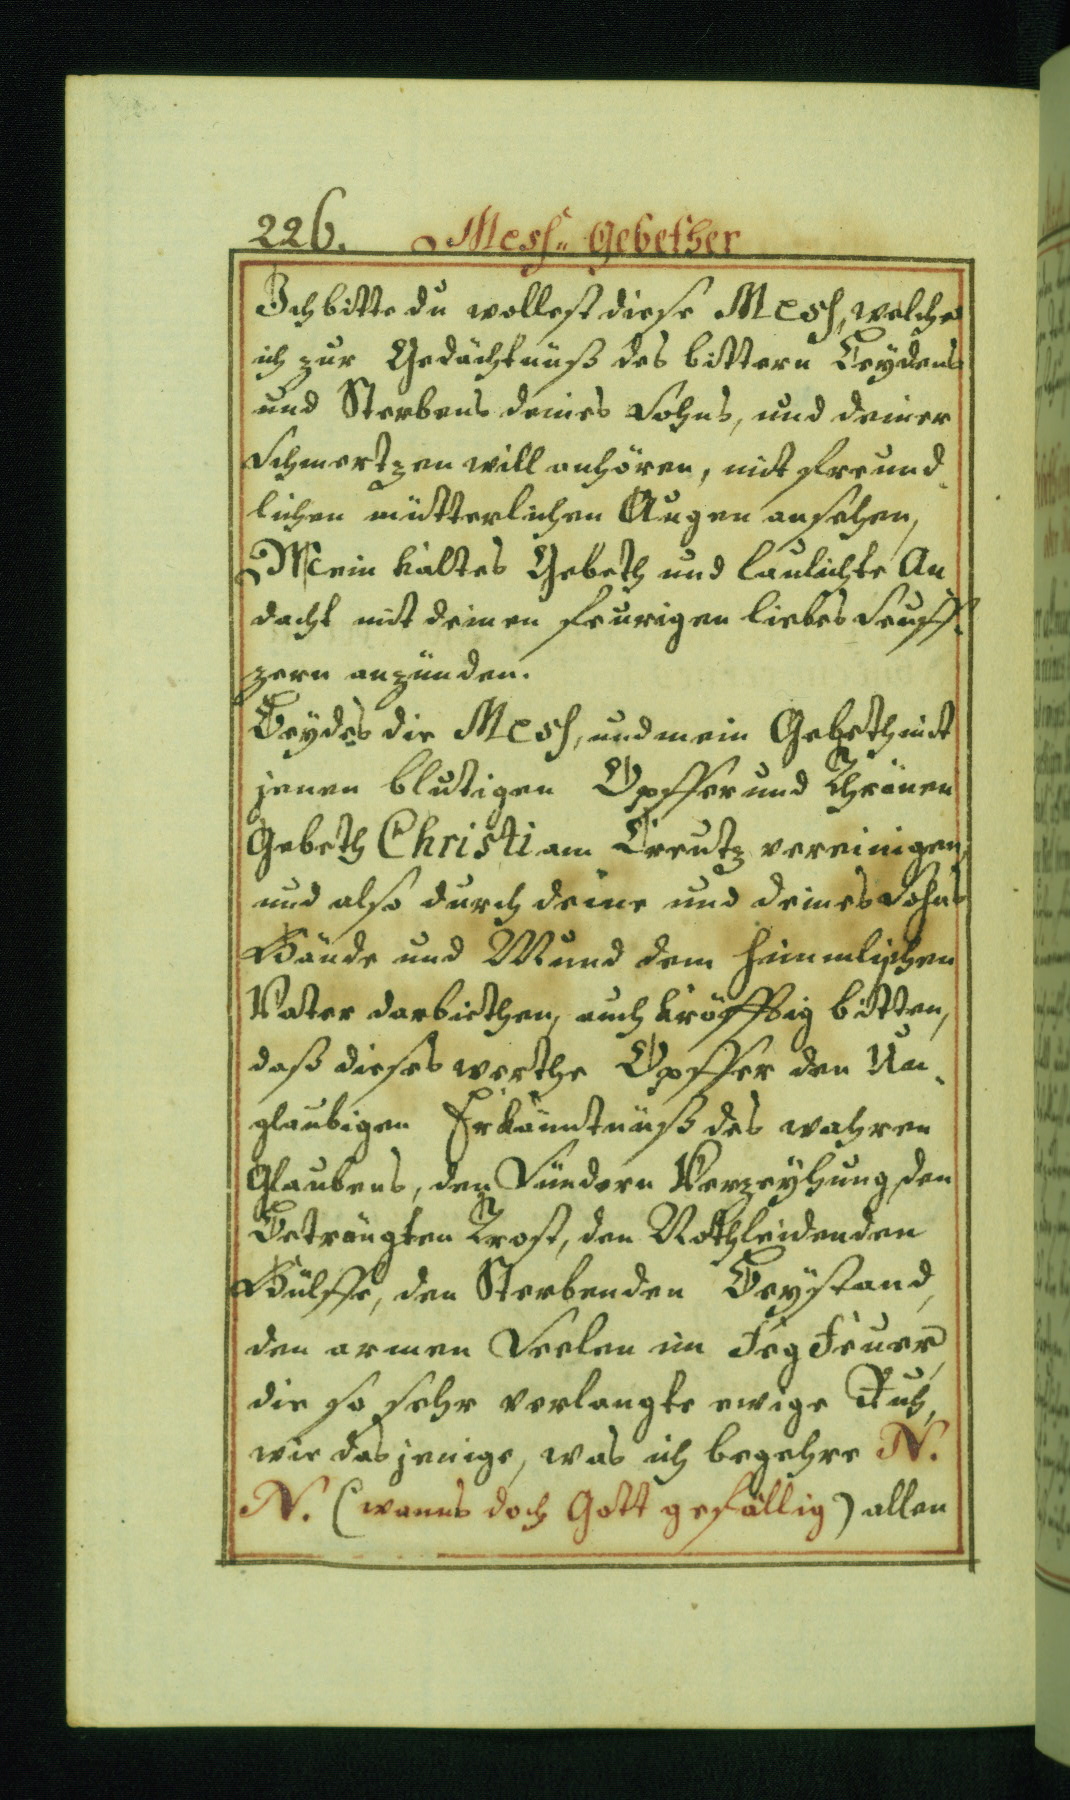 226. Mess- Gebether
Ich bitte du wollest diese Mess, welche
ich zur Gedächtnüß des bittern Leydens
und Sterbens deines Sohns, und deiner
Schmertzen will anhören, mit freund-
lichen mütterlichen Augen ansehen,
Mein kaltes Gebeth und laulichte An
dacht mit deinen feurigen liebes Seuff-
zern anzünden.
Beydes die Mess, und mein Gebeth mit
jenen blutigen Opffer und Thränen
Gebeth Christi am Creutz vereinigen,
und also durch deine und deines Sohns
Hände und Mund dem himmlischen
Vater darbiethen, auch kräfftig bitten,
daß dieses werthe Opffer den Un-
glaubigen Erkänntnüß des wahren
Glaubens, den Sündern Verzeyhung, den
Beträngten Trost, den Nothleidenden
Hülffe, den Sterbenden Beystand,
den armen Seelen im Feg Feuer
die so sehr verlangte ewige Ruh,
wie das jenige, was ich begehre N.
N. (wanns doch Gott gefällig) allen